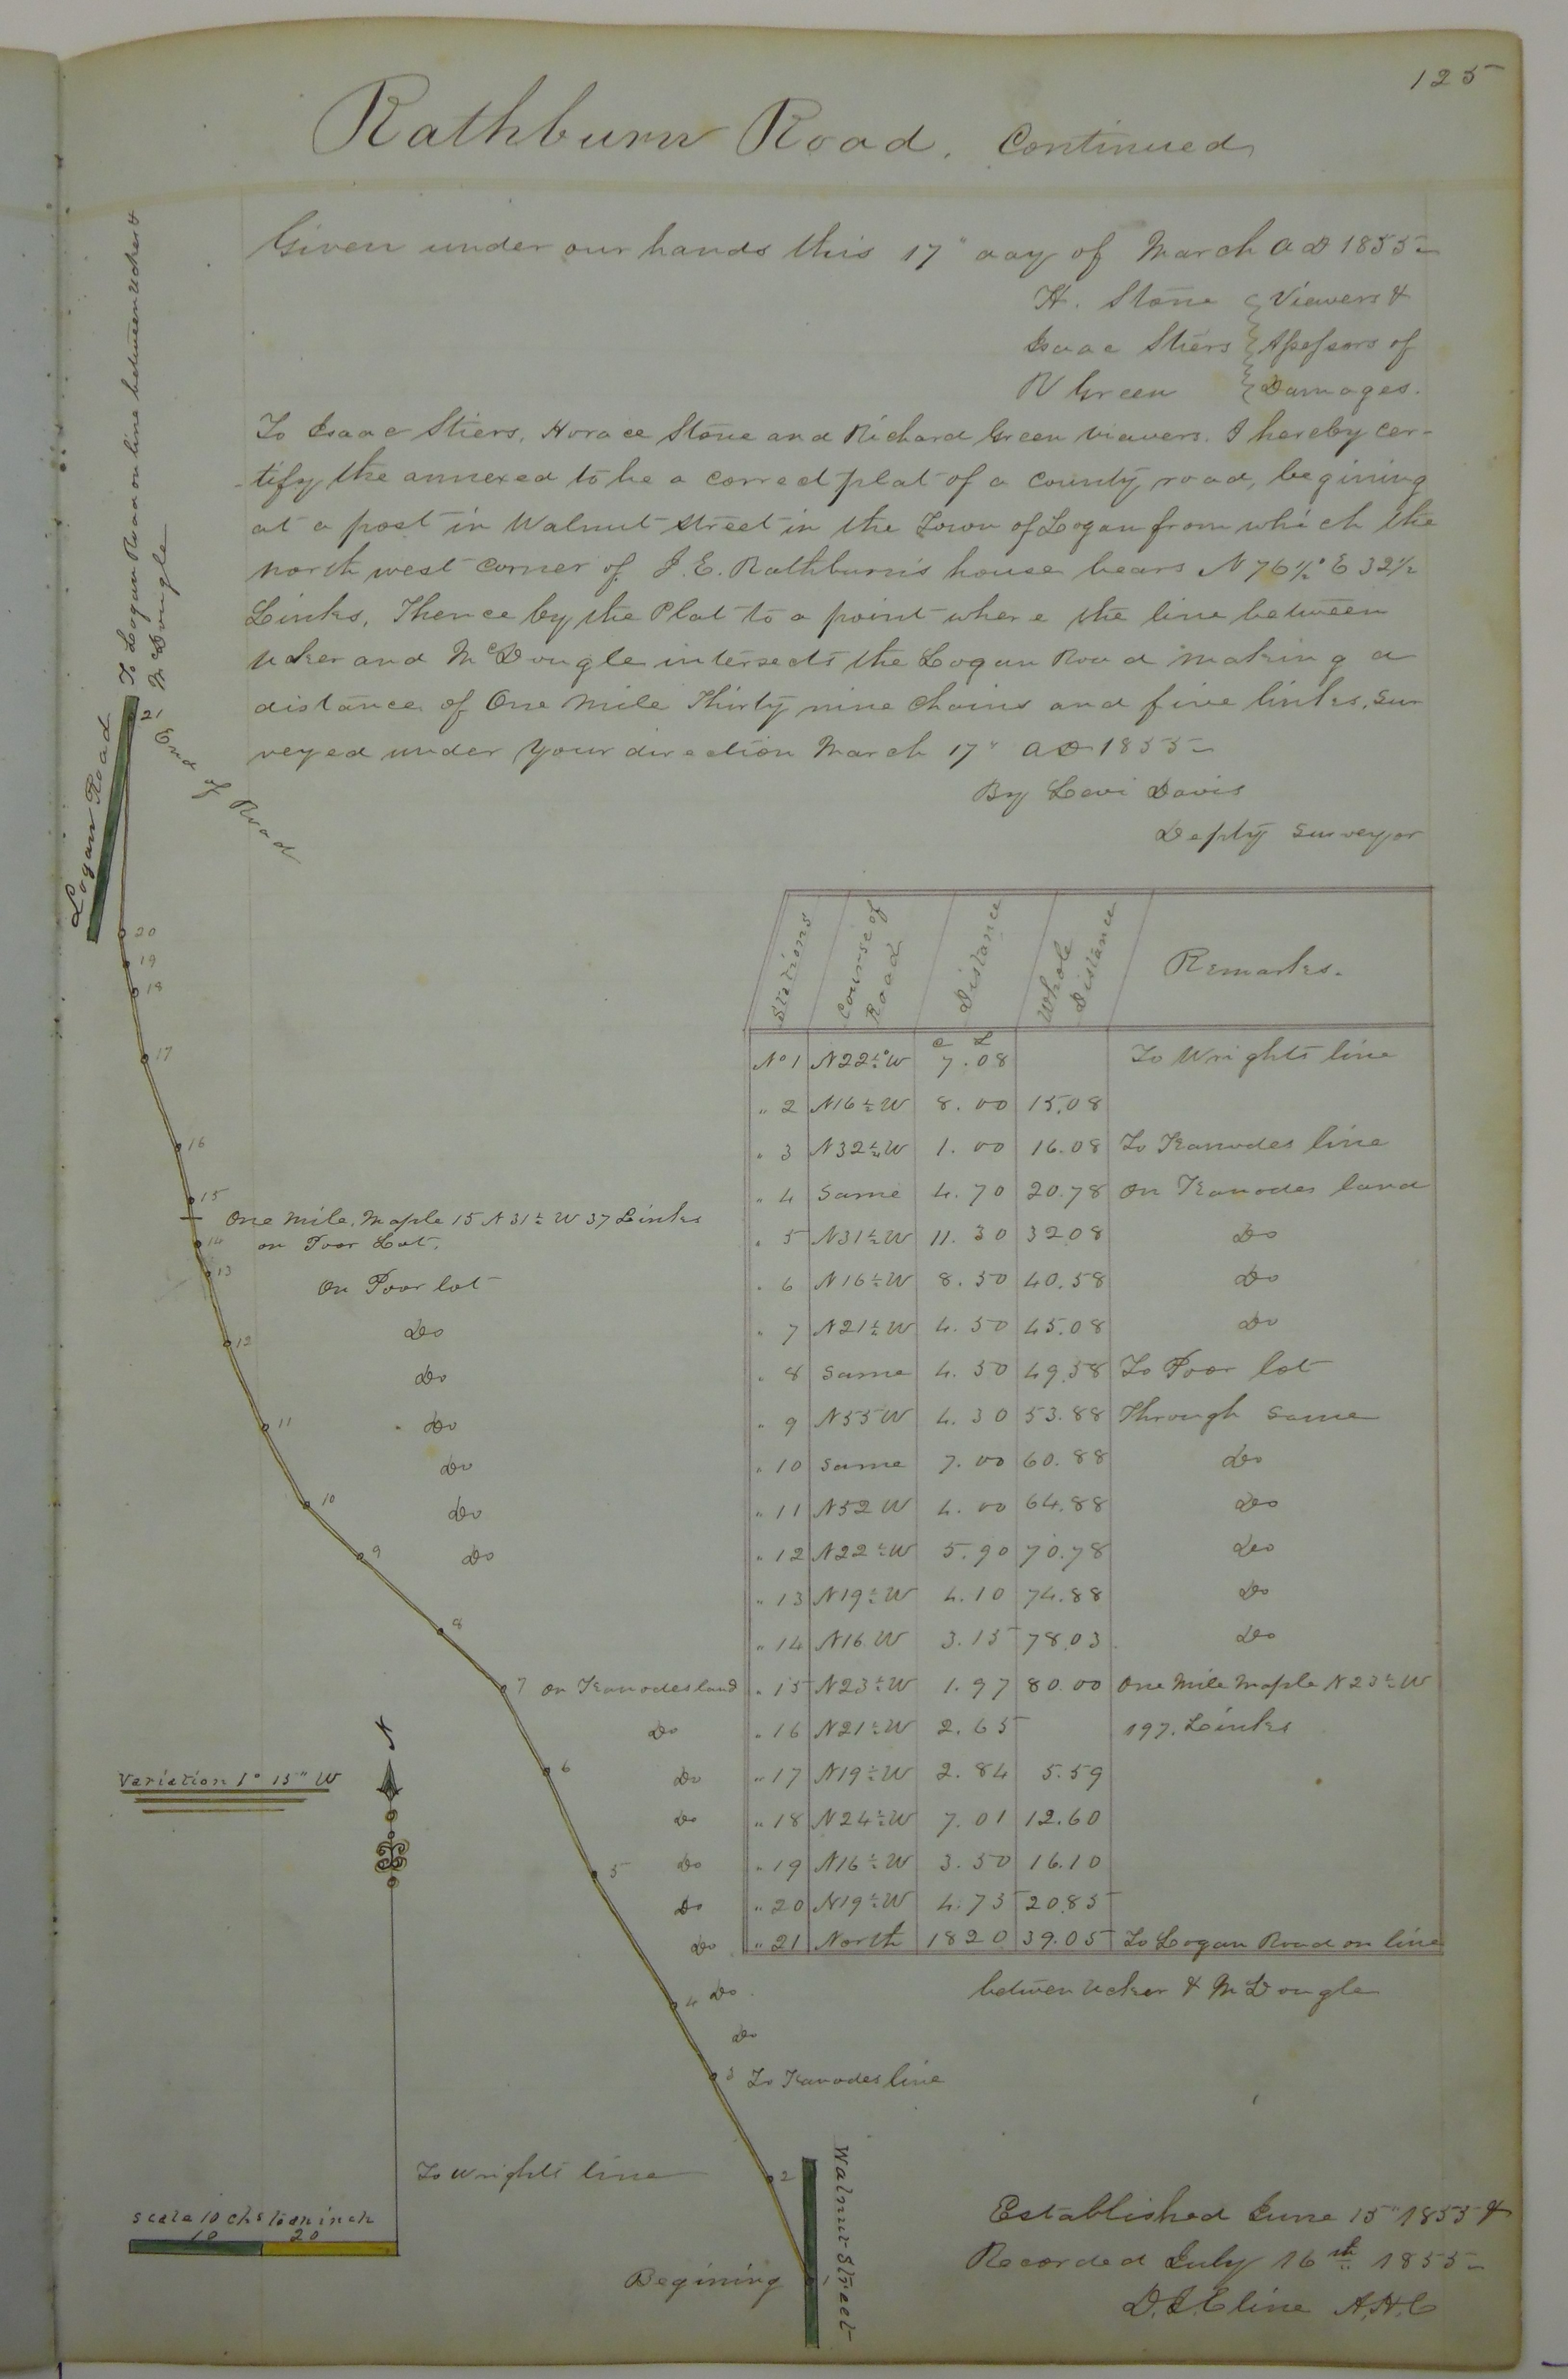 125
Rathburn Road. Continued
Given under our hands this 17" day of March A D 1855
H. Stone } Viewers &
Isaac Stiers } Assessors of
R Green } Damages.
To Isaac Stiers, Horace Stone and Richard Green viewers. I hereby cer-
-tify the annexed to be a correct plat of a county road, begining
at a post in Walnut street in the Town of Logan from which the
north west corner of J. E. Rathburn's house bears N 76 1/2° E 32 1/2
Links, Thence by the Plat to a point where the line between
Ucker and McDougle intersects the Logan Road making a
distance of One Mile Thirty nine chains and five links, Sur
veyed under your direction March 17" A D 1855
By Levi Davis
Depty Surveyor
To Logan Road on line between Ucker &
McDougle
Logan Road
21
End of Road
20
19
18
17
16
15
One Mile, Maple 15 N 31 1/2 W 37 Links
on Poor Lot.
14
13
On Poor lot
12
Do
Do
11
Do
Do
10
Do
9
Do
8
7 On Kanodes land
Do
6
Do
Do
5
Do
Do
Do
4 Do
Do
3 To Kanodes line
To Wrights line
2
1
Begining
Walnut Street
N
Variation 1° 15" W
Scale 10 chs to an inch
10 20
Stations Course of Road Distance Whole Distance Remarks.
C L
No 1 N22 1/2° W 7.08 To Wrights line
" 2 N16 1/2 W 8.00 15.08
" 3 N32 1/4 W 1.00 16.08 To Kanodes line
" 4 Same 4.70 20.78 On Kanodes land
" 5 N31 1/2 W 11.30 32.08 Do
" 6 N16 1/2 W 8.50 40.58 Do
" 7 N21 1/2 W 4.50 45.08 Do
" 8 Same 4.50 49.58 To Poor lot
" 9 N55 W 4.30 53.88 Through Same
" 10 Same 7.00 60.88 Do
" 11 N52 W 4.00 64.88 Do
" 12 N22 1/2 W 5.90 70.78 Do
" 13 N19 1/2 W 4.10 74.88 Do
" 14 N16 W 3.15 78.03 Do
" 15 N23 1/2 W 1.97 80.00 One Mile Maple N23 1/2 W
" 16 N21 1/2 W 2.65 197. Links
" 17 N19 1/2 W 2.84 5.59
" 18 N24 1/2 W 7.01 12.60
" 19 N16 1/2 W 3.50 16.10
" 20 N19 1/2 W 4.75 20.85
" 21 North 1820 39.05 To Logan Road on line
betwen Ucker & McDougle
Established June 15" 1855 &
Recorded July 16th 1855